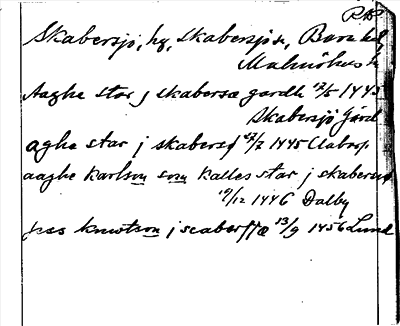 PB
Skabersjö, hg, Skabersjö sn, Bara hd,
Malmöhus l.
Aaghe star j skabersæ gardh 12/5 1445
Skabersjö Gård
aghe star j skabersj 27/7 1445
aaghe karlson som kalles star j skabersø
19/12 1446 Dalby
jess knwtson j scabersyæ 13/9 1456 Lund